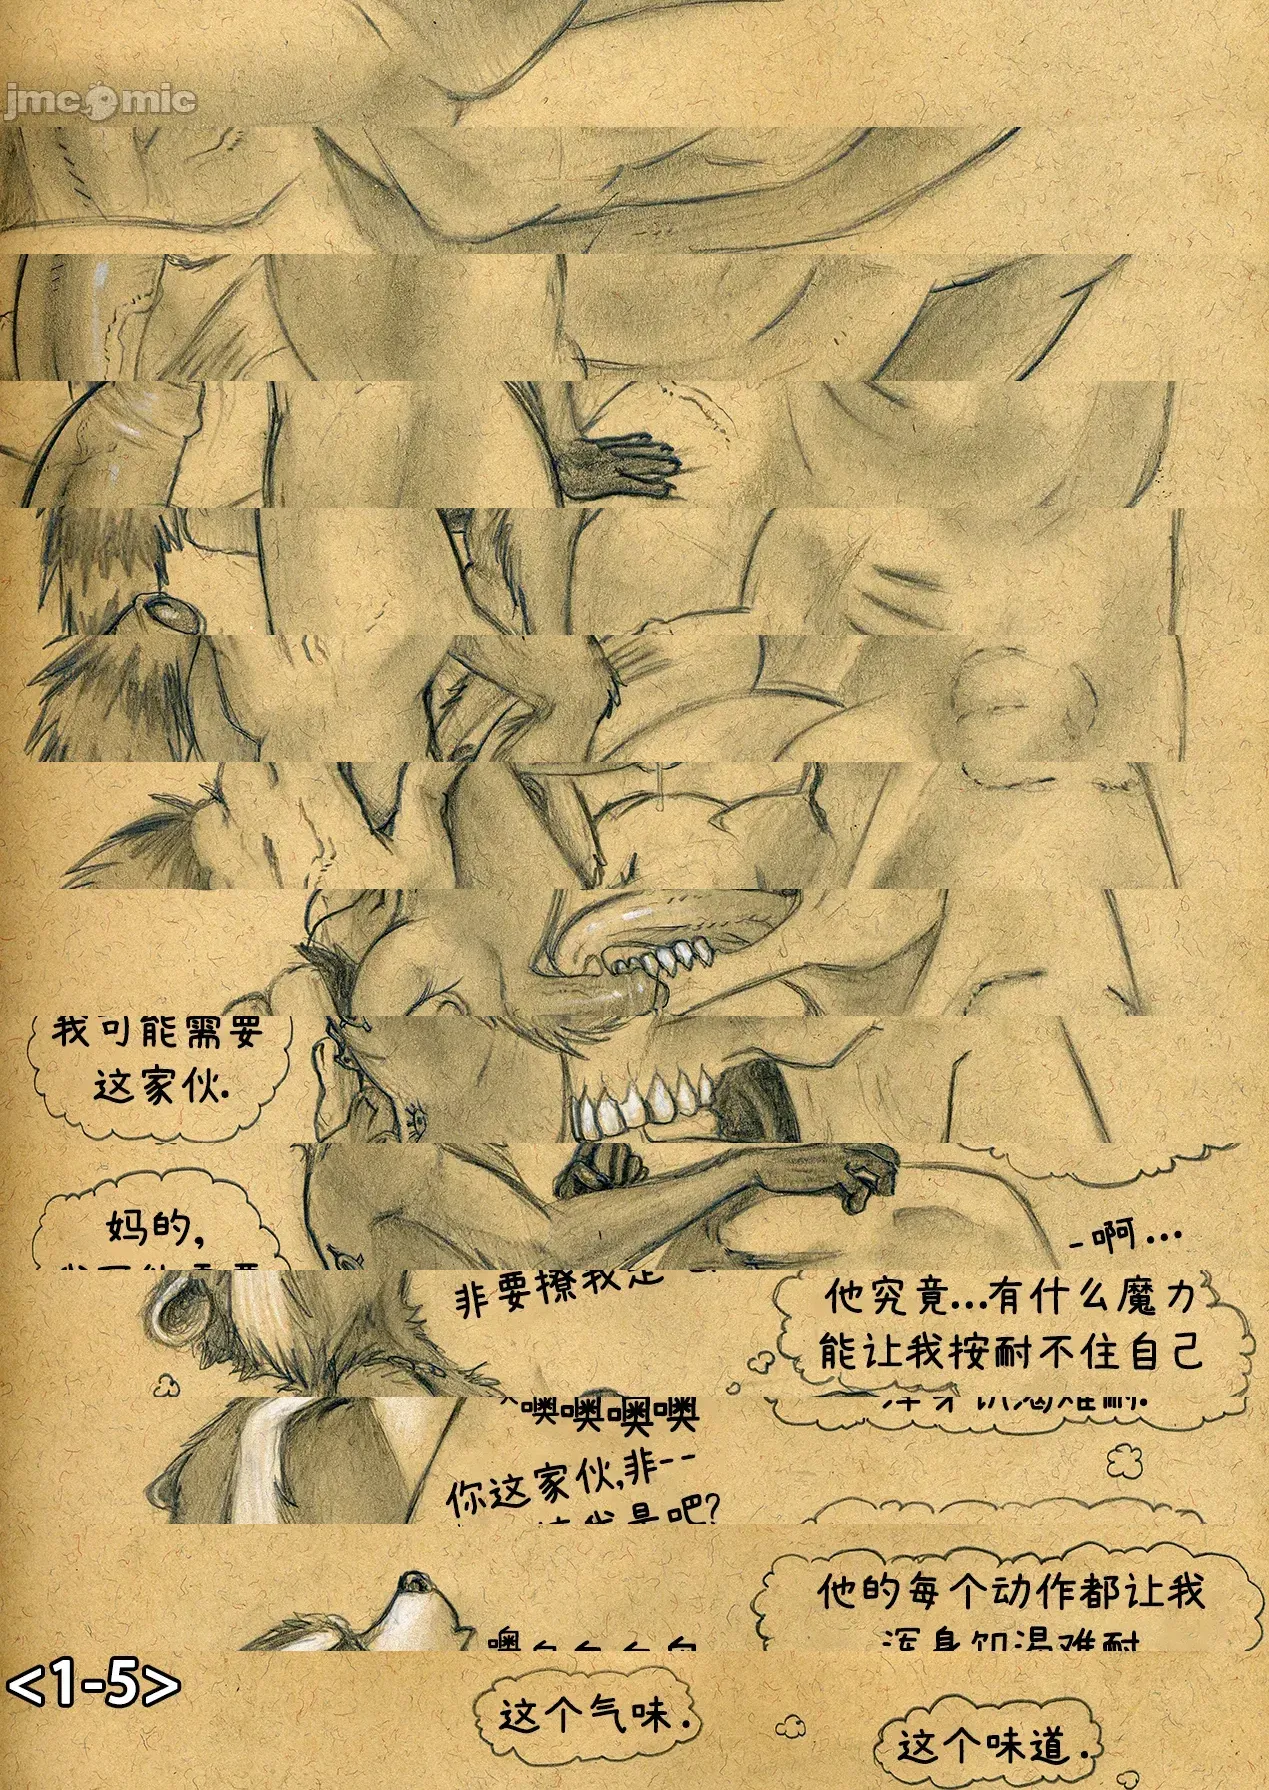 jmcomic
我可能需要
这家伙.
妈的,
-啊...
非要撩我是
他究竟...有什么魔力
能让我按耐不住自己
噢噢噢噢
你这家伙,非--
是吧?
他的每个动作都让我
浑身饥渴难耐
噢
<1-5>
这个气味.
这个味道.